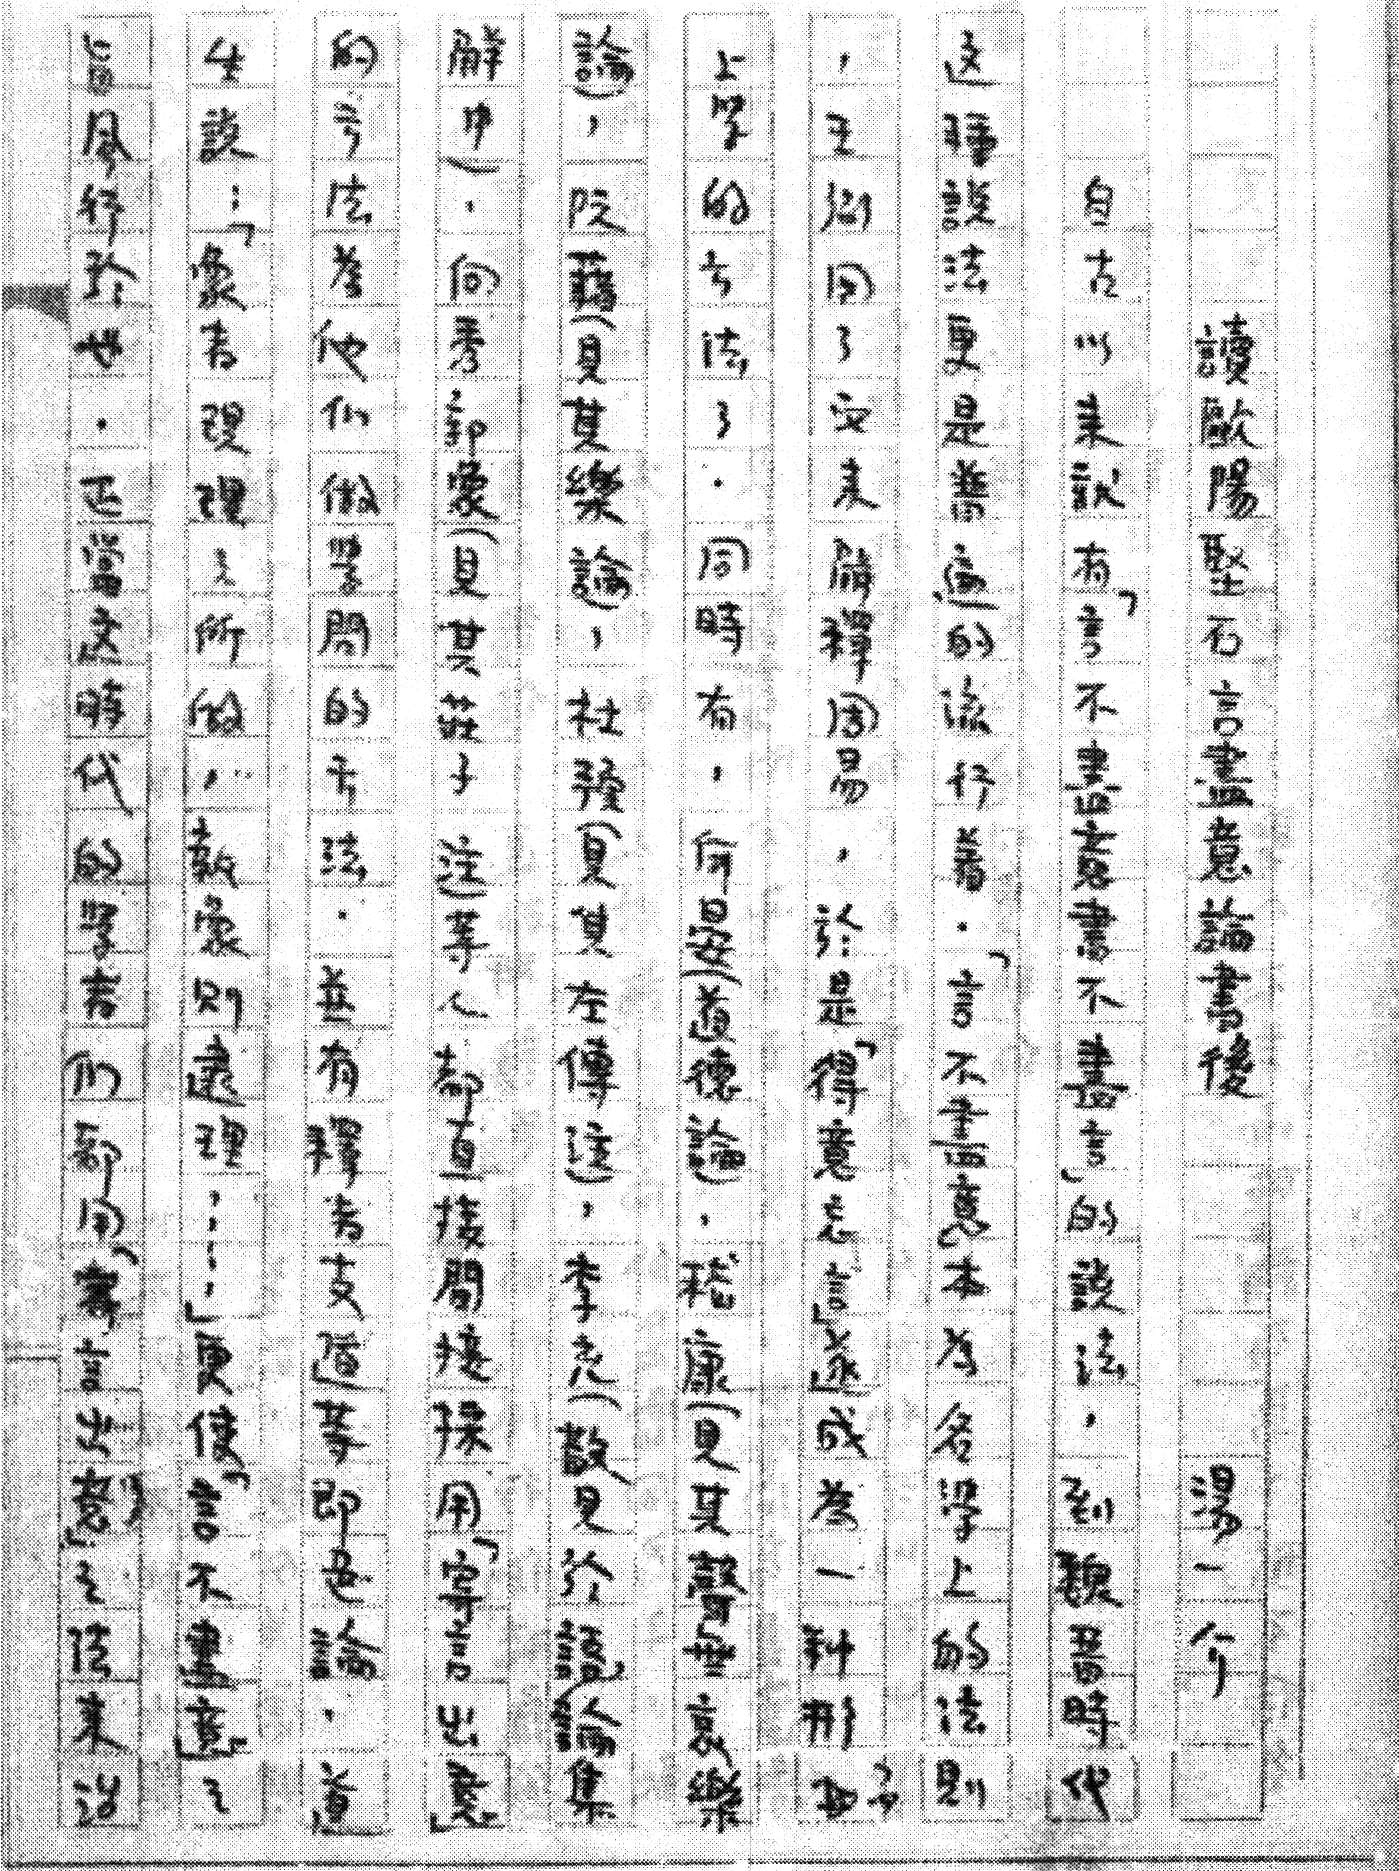 讀歐陽堅石言盡意論書後 湯一介
自古以來就有「言不盡意書不盡言」的說法,到魏晋時代
這種說法更是普遍的流行着.「言不盡意」本為名學上的法則
,王弼用了它來解釋周易,於是「得意忘言」遂成為一种形而
上學的方法了.同時有,何晏(道德論),嵇康(見其聲無哀樂
論),阮籍(見其樂論),杜預(見其左傳注),李充(散見於論語集
解中).向秀郭象(見其莊子注)等人都直接間接採用「寄言出意」
的方法為他們做學問的方法.並有釋者支道等即色論.道
生說:「象者理之所假,…執象則迷理……」更使「言不盡意」之
旨風行於世.正當這時代的學者們都用「寄言出意」之法來治